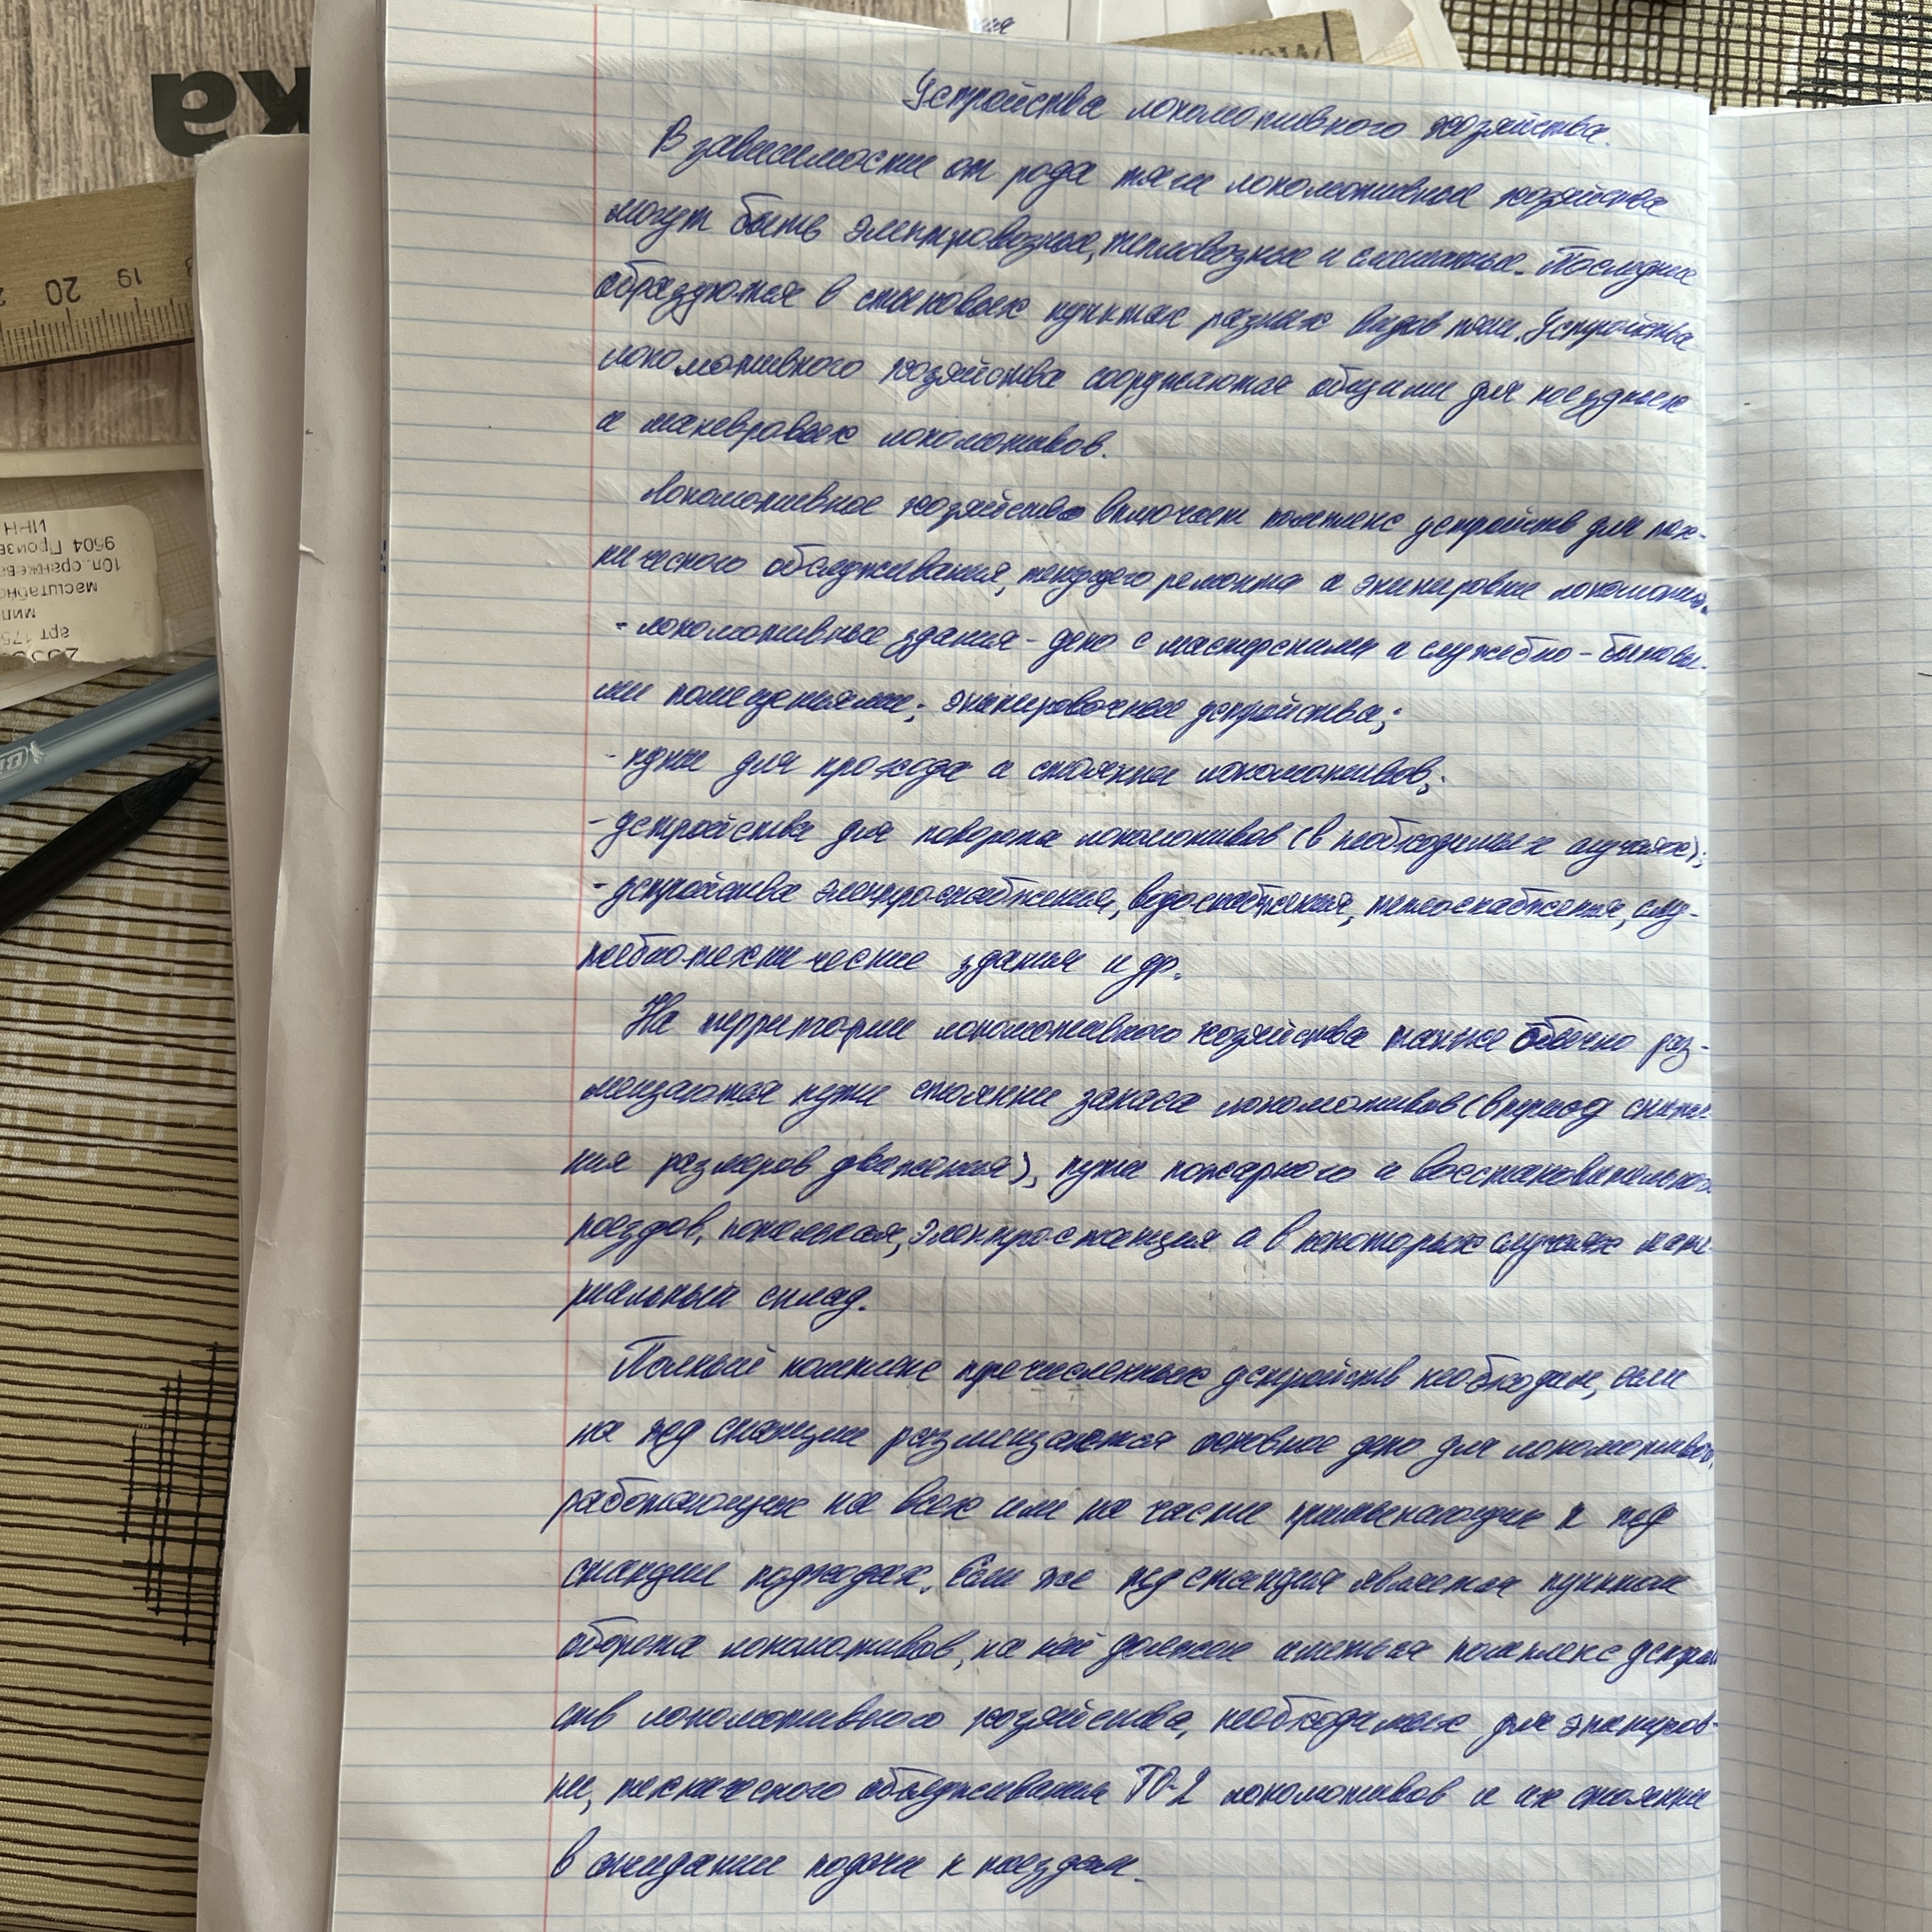 ка
20 19
ИНН
9604 Произв
10п. оранжева
масштабно
мил
арт 175
Устройства локомотивного хозяйства.
В зависимости от рода тяги локомотивное хозяйства
могут быть электровозные, тепловозные и смешанные. Последние
образуются в стыковых пунктах разных видов тяги. Устройства
локомотивного хозяйства сооружаются общими для поездных
и маневровых локомотивов.
Локомотивное хозяйство включает комплекс устройств для тех-
нического обслуживания, текущего ремонта и экипировки локомотивов
- локомотивные здания - депо с мастерскими и служебно - бытовы-
ми помещениями; экипировочные устройства;
- пути для прохода и стоянки локомотивов;
- устройства для поворота локомотивов (в необходимых случаях);
- устройства электроснабжения, водоснабжения, теплоснабжения, слу-
жебно-технические здания и др.
На территории локомотивного хозяйства также обычно раз-
мещаются пути стоянки запаса локомотивов (в период сниже-
ния размеров движения), пути пожарного и восстановительного
поездов, котельная, электростанция а в некоторых случаях мате-
риальный склад.
Полный комплекс перечисленных устройств необходим, если
на жд станции размещаются основное депо для локомотивов,
работающих на всех или на части примыкающих к жд
станции подходах. Если же жд станция является пунктом
оборота локомотивов, на ней должен иметься комплекс устрой
ств локомотивного хозяйства, необходимых для экипиров-
ки, технического обслуживания ТО-2 локомотивов и их стоянки
в ожидании подачи к поездам.